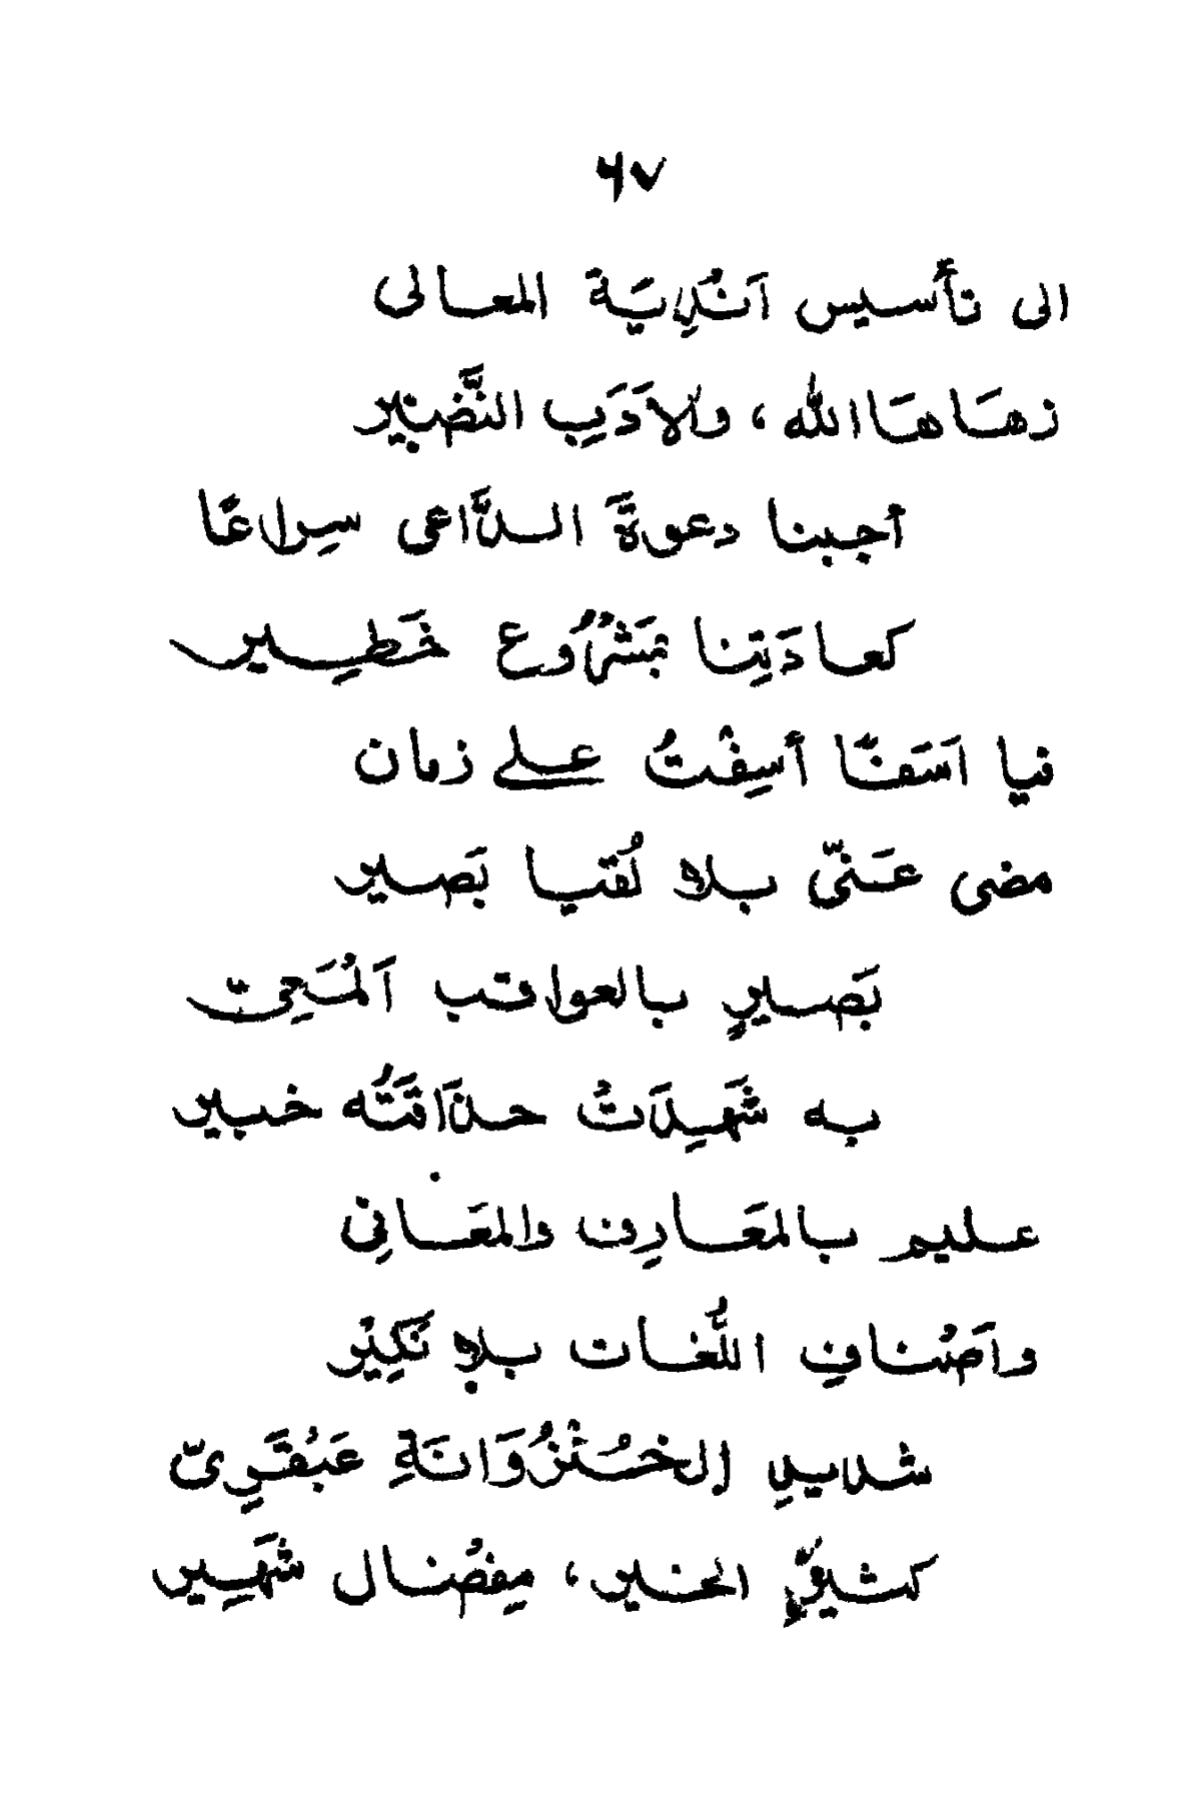 ٦٧
الى تأسيس اَنْدِيَةَ المعالى
زهَاهَا الله ، والادَبِ النَّضير
أجبنا دعوةَ الدَّاعى سِراعًا
كعادَتِنا بمَشْرُوع خَطِير
فيا اَسَفًا أسِفْتُ على زمان
مضى عَنّى بلا لُقيا بَصير
بَصيرٍ بالعواقب اَلْمَعِىّ
به شَهِدَتْ حذَاقَتُه خبير
عليم بالمعَارِف والمعَانِى
واَصْنافِ اللُّغات بلا نَكِيْر
شديدِ الخُنْزُوَانَةِ عَبْقَرِىّ
كثيرِ الخير ، مِفضال شَهِير